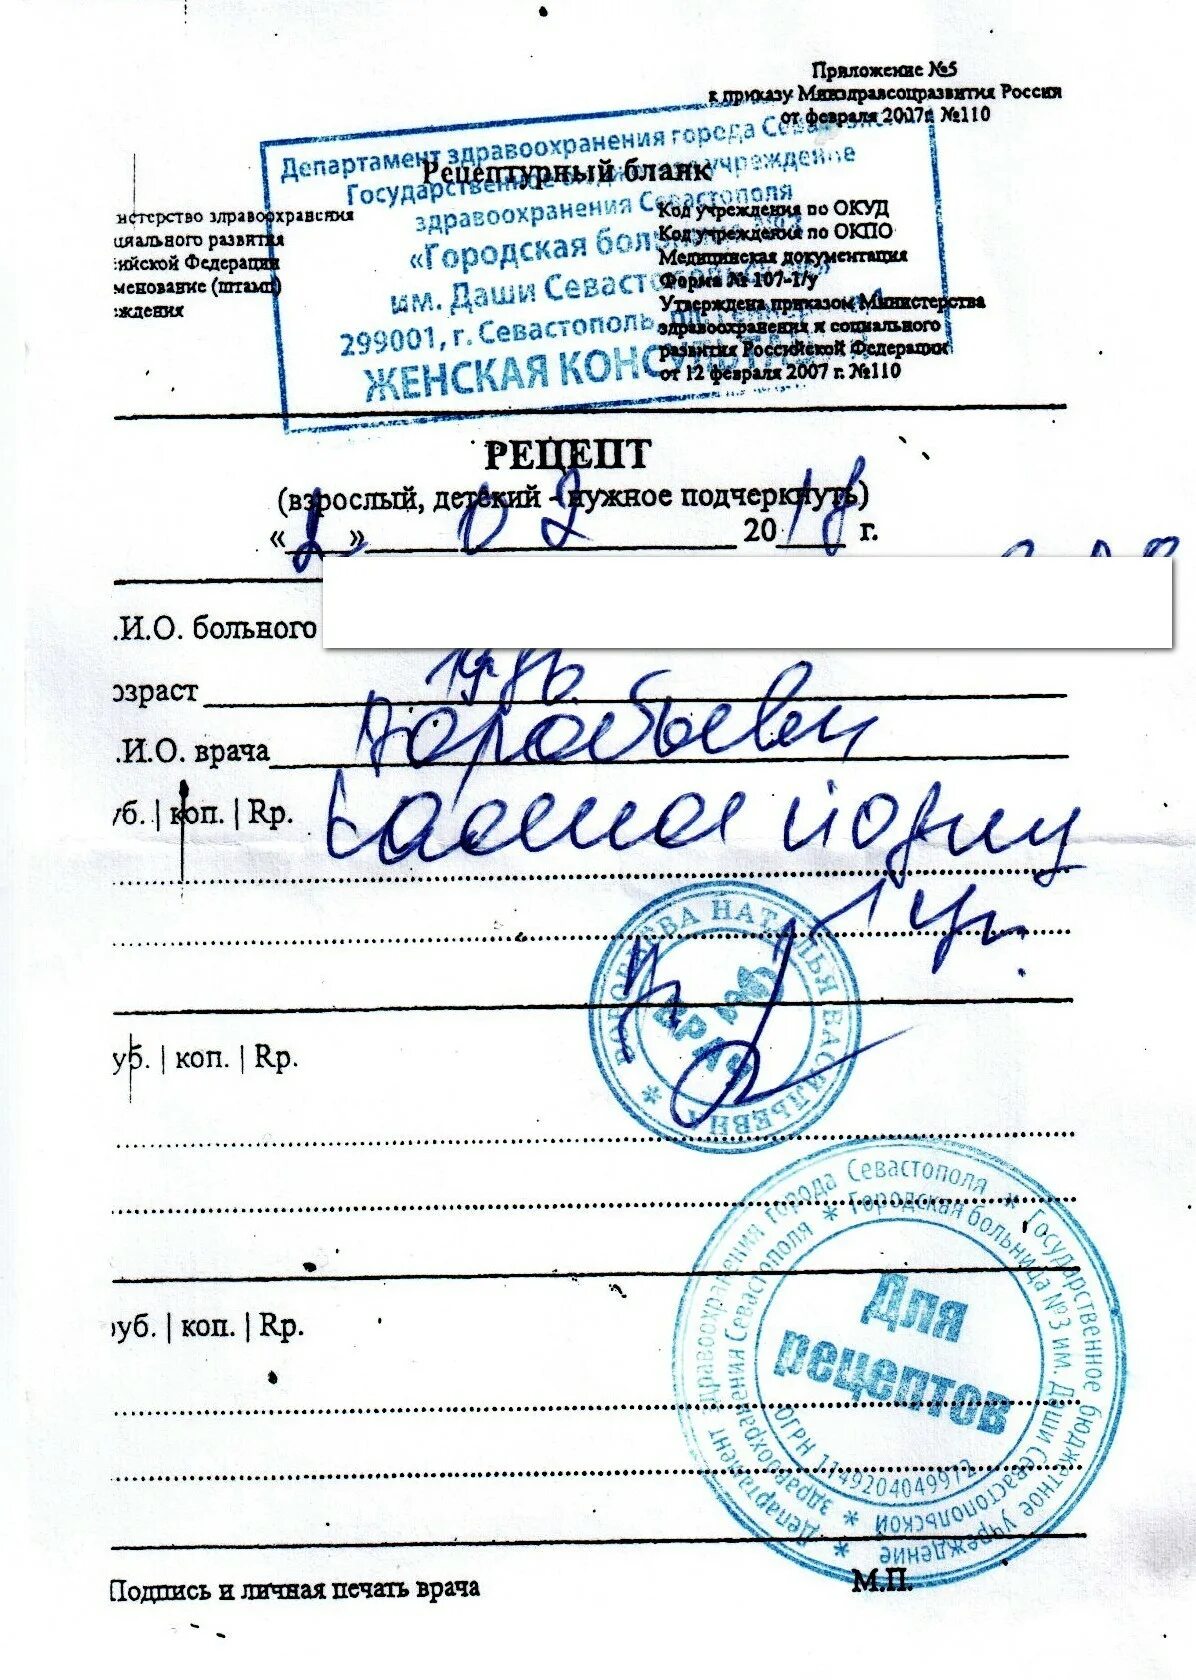 Приложение №5
к приказу Минздравсоцразвития России
от февраля 2007г. №110
Департамент здравоохранения города
Рецептурный бланк
Государственное учреждение
здравоохранения Севастополя
«Городская
им. Даши
299001, г. Севастополь,
ЖЕНСКАЯ
нстерство здравоохранения
циального развития
сийской Федерации
менование (штамп)
ждения
Код учреждения по ОКУД
Код учреждения по ОКПО
Медицинская документация
Форма № 107-1/у
Утверждена приказом Министерства
здравоохранения и социального
развития Российской Федерации
от 12 февраля 2007 г. №110
РЕЦЕПТ
(взрослый, детский - нужное подчеркнуть)
« » 02 2018 г.
.И.О. больного
озраст
.И.О. врача Воробьева
уб. | коп. | Rp.
ВОРОБЬЕВА НАТАЛЬЯ ВАСИЛЬЕВНА
ВРАЧ
уб. | коп. | Rp.
руб. | коп. | Rp.
Департамент здравоохранения города Севастополя * Государственное бюджетное учреждение *
здравоохранения Севастополя * Городская больница №3 им. Даши Севастопольской *
Для
рецептов
ОГРН 1149204049972
Подпись и личная печать врача
М.П.